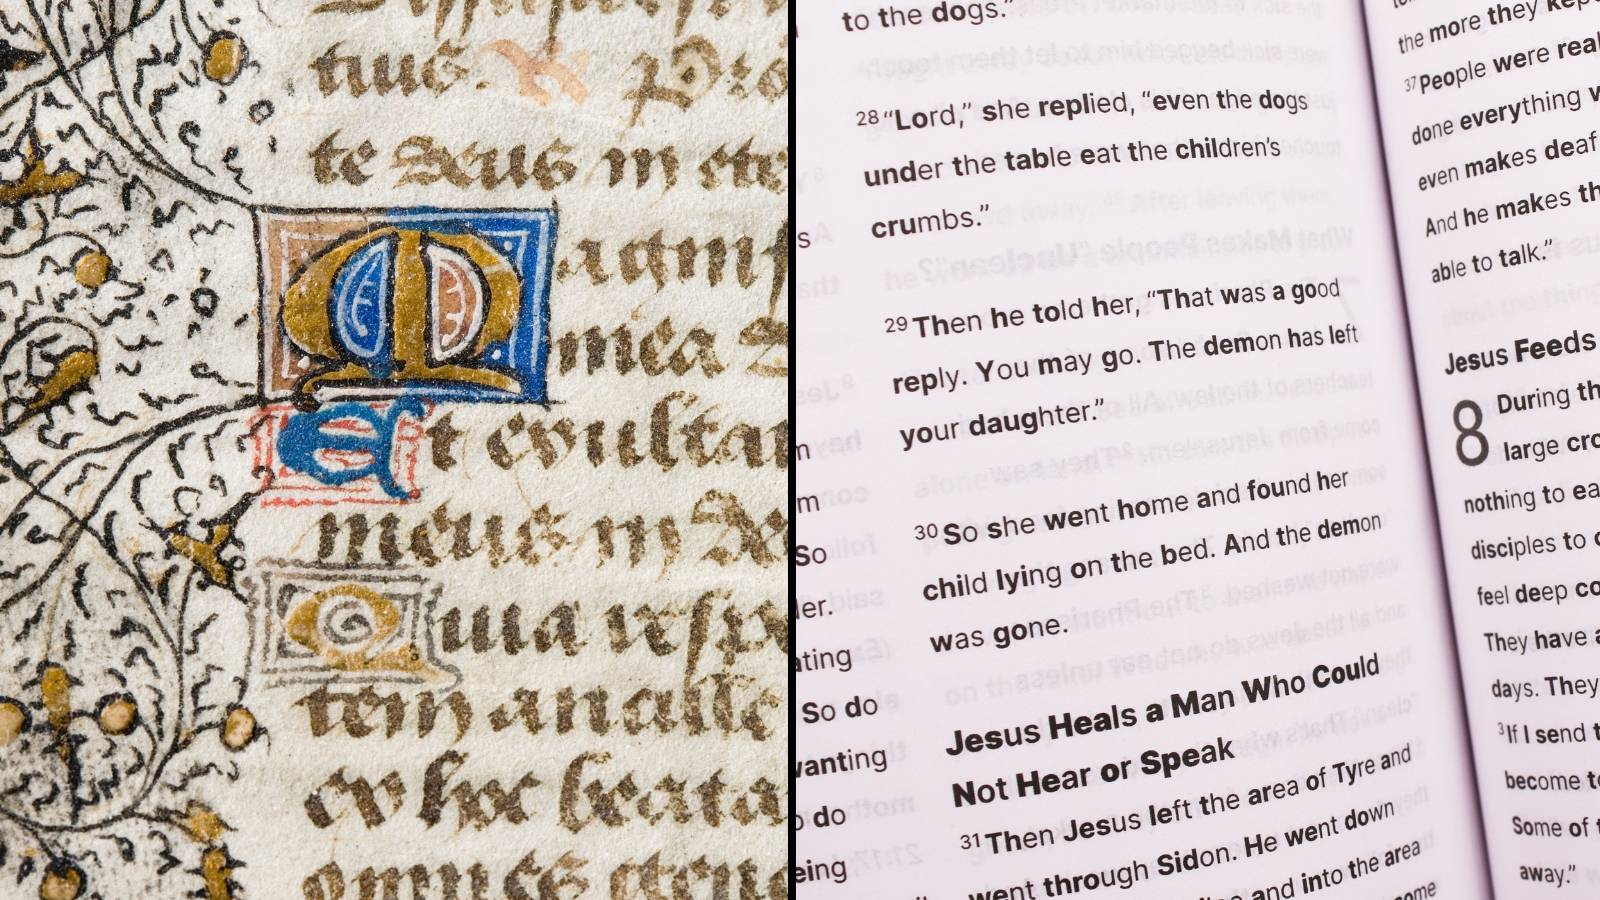 tius
te deus in ste
Magnif
mea
Et exulta
meus in
Quia resp
tem ancille
ex hoc beata
omnes gene
to the dogs.”
28 “Lord,” she replied, “even the dogs
under the table eat the children’s
crumbs.”
29 Then he told her, “That was a good
reply. You may go. The demon has left
your daughter.”
30 So she went home and found her
child lying on the bed. And the demon
was gone.
Jesus Heals a Man Who Could
Not Hear or Speak
31 Then Jesus left the area of Tyre and
went through Sidon. He went down
and into the area
s
m
m
So
er.
ating
So do
wanting
do
eing
the more they kep
37 People were real
done everything w
even makes deaf
And he makes th
able to talk.”
Jesus Feeds
8 During th
large cro
nothing to ea
disciples to c
feel deep co
They have a
days. They
3 If I send t
become to
Some of t
away.”